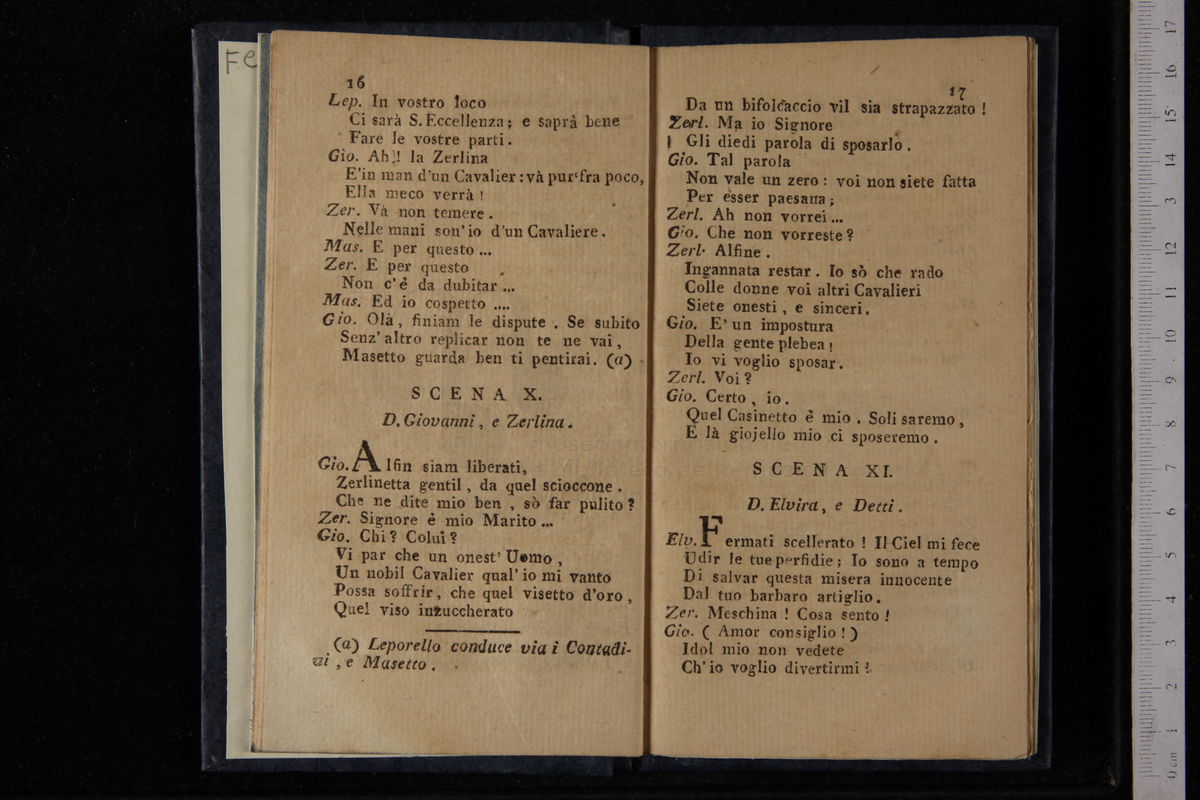 Fe
16
Lep. In vostro loco
Ci sarà S. Eccellenza; e saprà bene
Fare le vostre parti.
Gio. Ah!! la Zerlina
E'in man d'un Cavalier: và pur fra poco,
Ella meco verrà!
Zer. Và non temere.
Nelle mani son'io d'un Cavaliere.
Mas. E per questo ...
Zer. E per questo
Non c'é da dubitar ...
Mas. Ed io cospetto ....
Gio. Olà, finiam le dispute. Se subito
Senz'altro replicar non te ne vai,
Masetto guarda ben ti pentirai. (a)
SCENA X.
D. Giovanni, e Zerlina.
Gio. Alfin siam liberati,
Zerlinetta gentil, da quel scioccone.
Che ne dite mio ben, sò far pulito?
Zer. Signore è mio Marito ...
Gio. Chi? Colui?
Vi par che un onest' Uomo,
Un nobil Cavalier qual'io mi vanto
Possa soffrir, che quel visetto d'oro,
Quel viso inzuccherato
(a) Leporello conduce via i Contadi-
ni, e Masetto.
17
Da un bifolcaccio vil sia strapazzato!
Zerl. Ma io Signore
Gli diedi parola di sposarlo.
Gio. Tal parola
Non vale un zero: voi non siete fatta
Per esser paesana;
Zerl. Ah non vorrei ...
Gio. Che non vorreste?
Zerl. Alfine.
Ingannata restar. Io sò che rado
Colle donne voi altri Cavalieri
Siete onesti, e sinceri.
Gio. E' un impostura
Della gente plebea!
Io vi voglio sposar.
Zerl. Voi?
Gio. Certo, io.
Quel Casinetto è mio. Soli saremo,
E là giojello mio ci sposeremo.
SCENA XI.
D. Elvira, e Detti.
Elv. Fermati scellerato! Il Ciel mi fece
Udir le tue perfidie; Io sono a tempo
Di salvar questa misera innocente
Dal tuo barbaro artiglio.
Zer. Meschina! Cosa sento!
Gio. (Amor consiglio!)
Idol mio non vedete
Ch'io voglio divertirmi!
0 cm 1 2 3 4 5 6 7 8 9 10 11 12 13 14 15 16 17